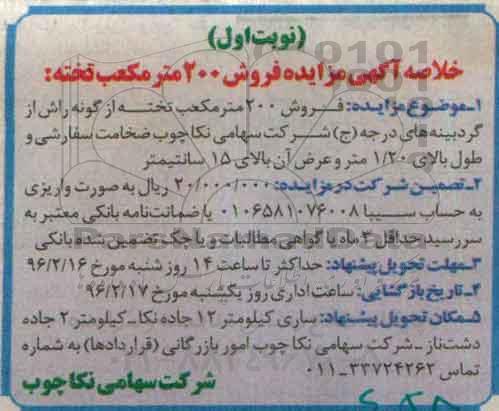 (نوبت اول)
خلاصه آگهی مزایده فروش ۲۰۰ متر مکعب تخته:
۱ـ موضوع مزایده: فروش ۲۰۰ مترمکعب تخته از گونه راش از
گردبینه‌های درجه (ج) شرکت سهامی نکا چوب ضخامت سفارشی و
طول بالای ۱/۲۰ متر و عرض آن بالای ۱۵ سانتیمتر
۲ـ تضمین شرکت در مزایده: ۲۰/۰۰۰/۰۰۰ ریال به صورت واریزی
به حساب سیبا ۰۱۰۶۵۸۱۰۷۶۰۰۸ یا ضمانت‌نامه بانکی معتبر به
سررسید حداقل ۳ ماه یا گواهی مطالبات و یا چک تضمین شده بانکی
۳ـ مهلت تحویل پیشنهاد: حداکثر تا ساعت ۱۴ روز شنبه مورخ ۹۶/۲/۱۶
۴ـ تاریخ بازگشایی: ساعت اداری روز یکشنبه مورخ ۹۶/۲/۱۷
۵ـ مکان تحویل پیشنهاد: ساری کیلومتر ۱۲ جاده نکا ـ کیلومتر ۲ جاده
دشت‌ناز ـ شرکت سهامی نکا چوب امور بازرگانی (قراردادها) به شماره
تماس ۳۳۷۲۴۲۶۲-۰۱۱
شرکت سهامی نکاچوب